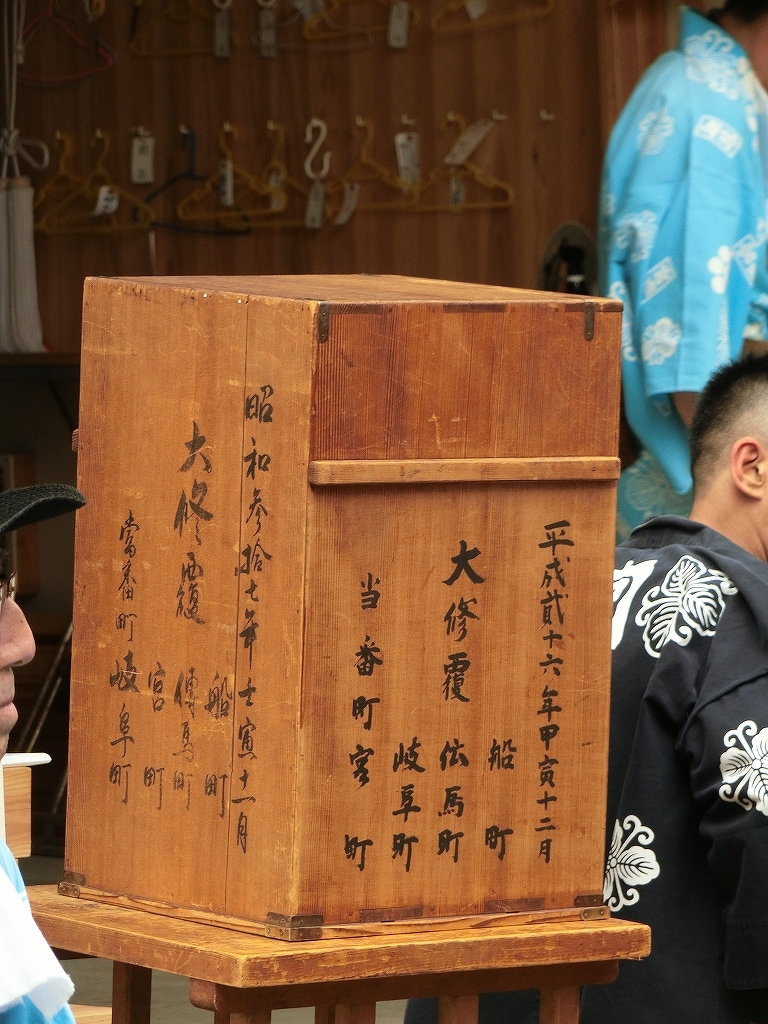 平成貮十六年甲寅十二月
船町
大修覆 伝馬町
岐阜町
当番町 宮町
昭和参拾七年壬寅十一月
船町
大修覆 傳馬町
宮町
當番町 岐阜町